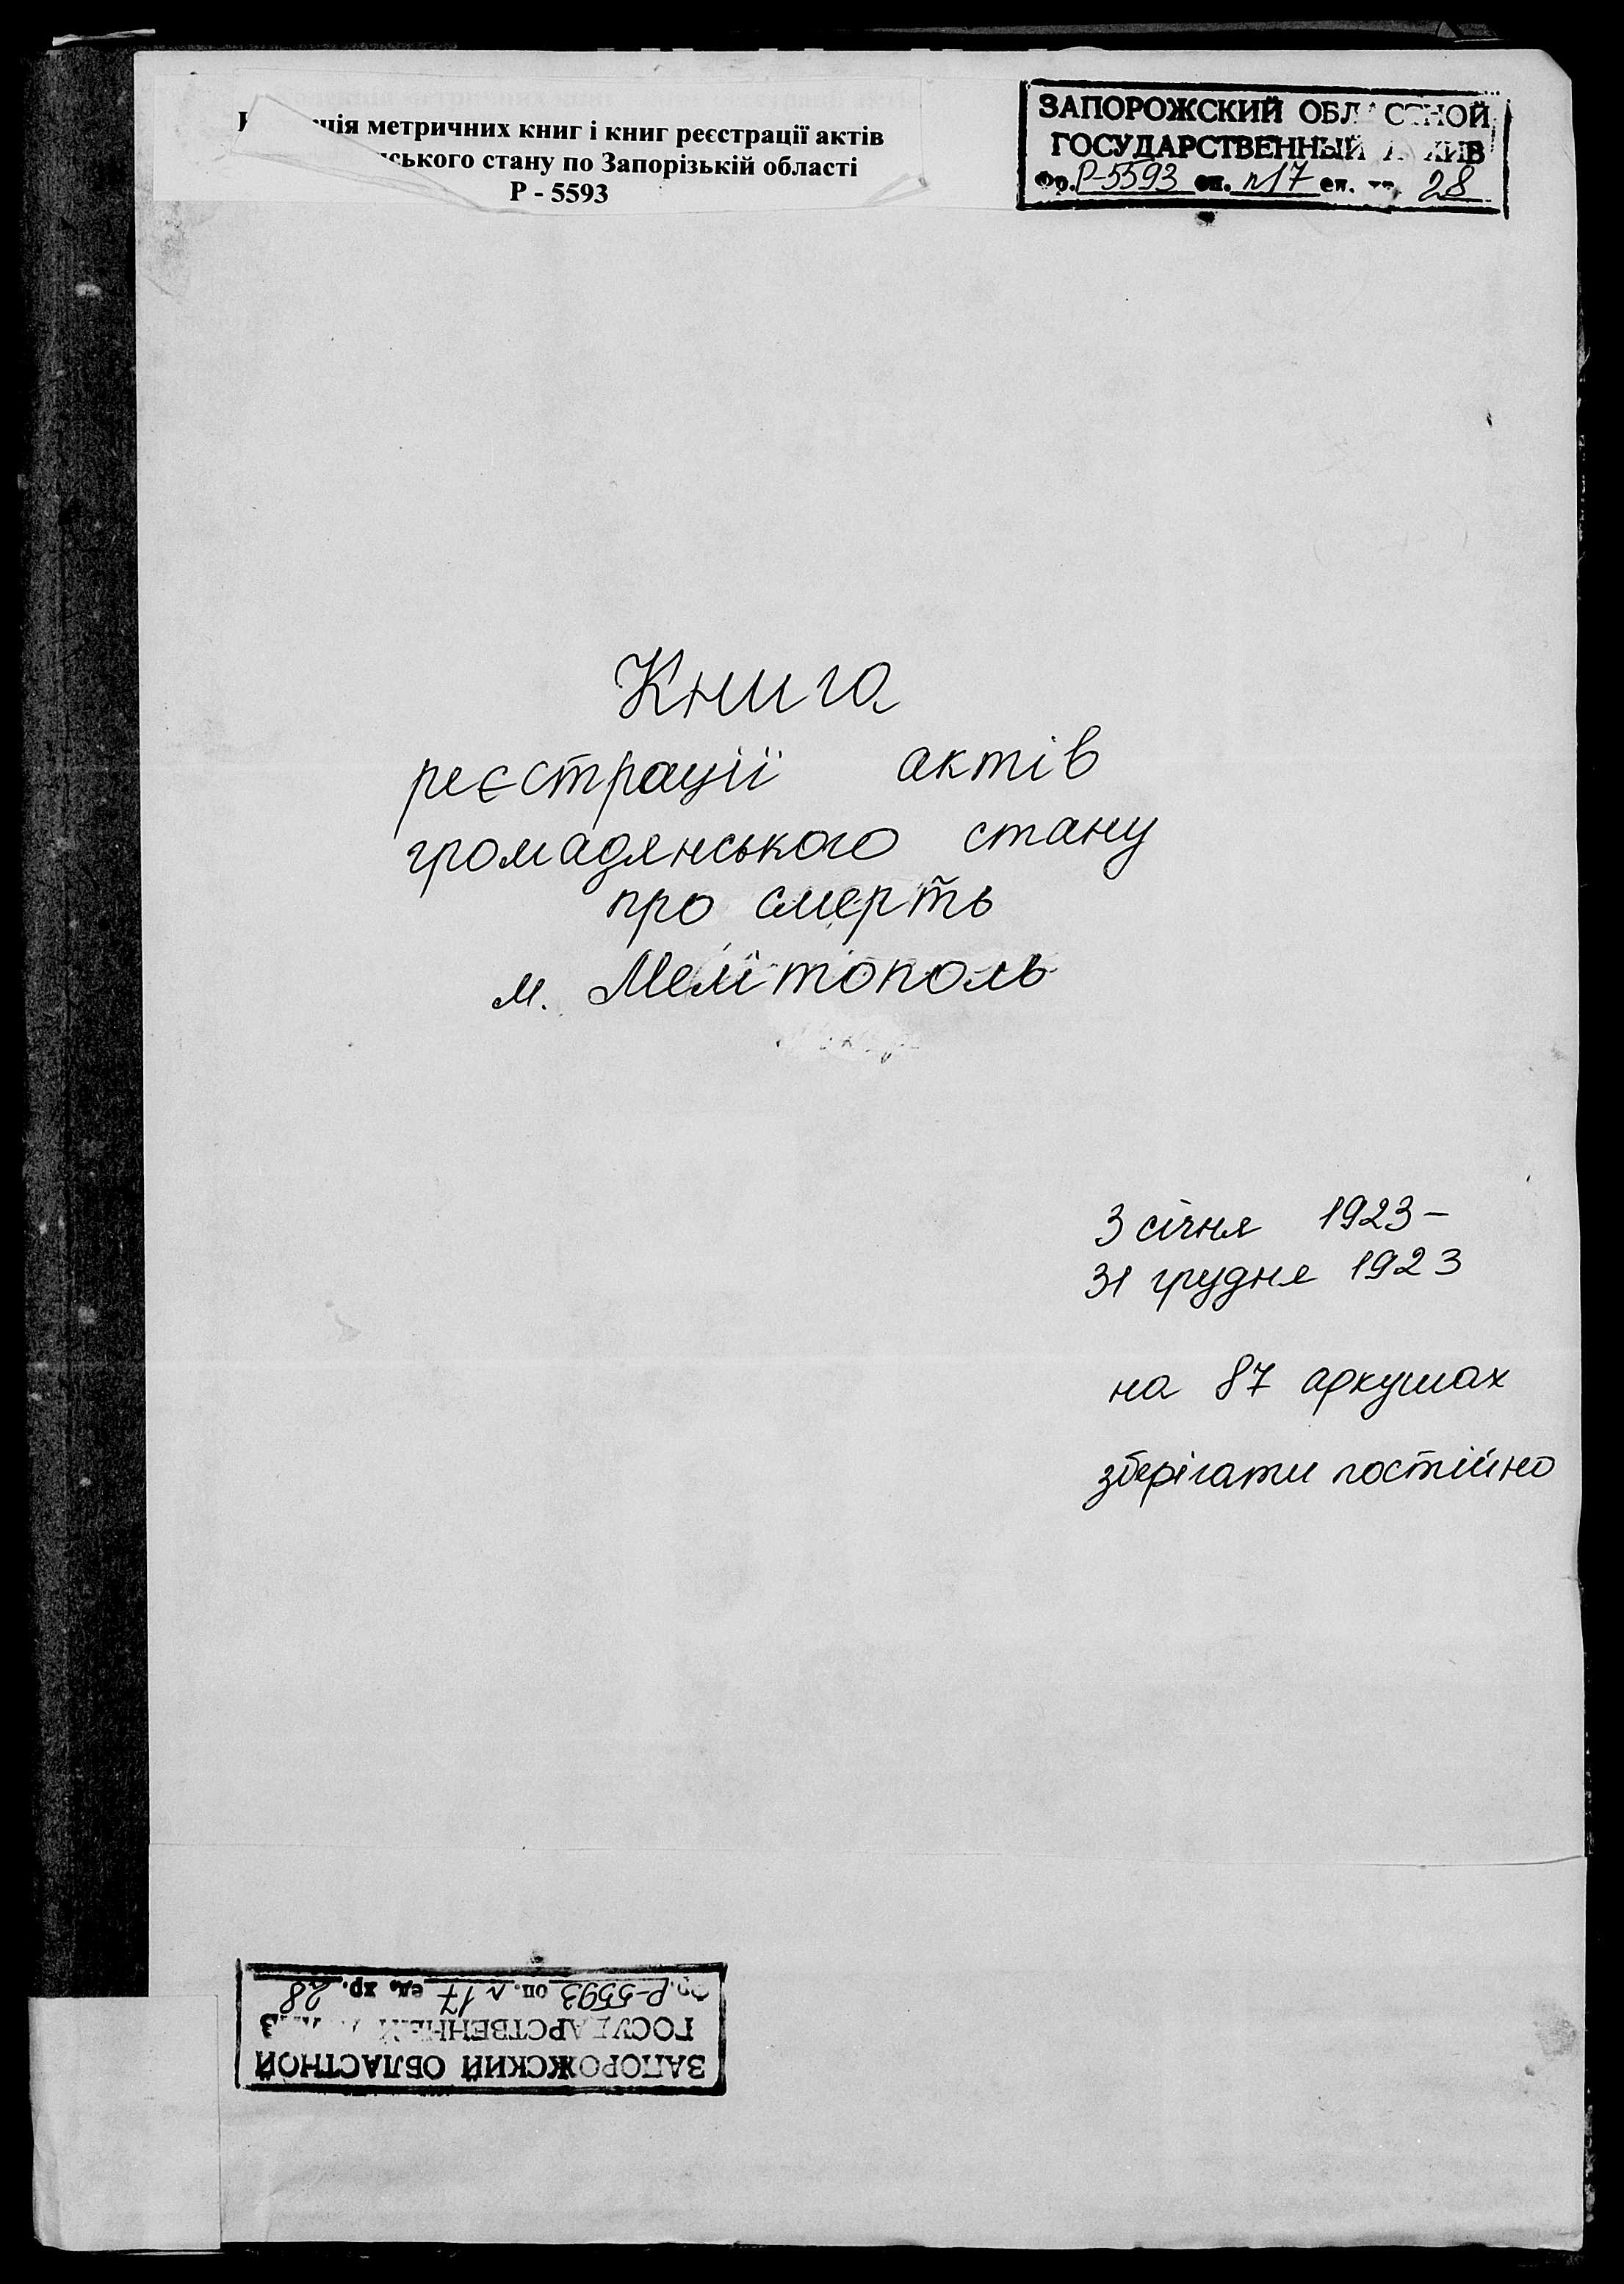 ція метричних книг і книг реєстрації актів
ського стану по Запорізькій області
Р - 5593
ЗАПОРОЖСКИЙ ОБЛ СТНОЙ
ГОСУДАРСТВЕННЫЙ А ХИВ
Фр. Р-5593 оп. л17 ед. хр. 28
Книга
реєстрації актів
громадянського стану
про смерть
м. Мелітополь
3 січня 1923-
31 грудня 1923
на 87 аркушах
зберігати постійно
ЗАПОРОЖСКИЙ ОБЛАСТНОЙ
ГОСУДАРСТВЕННЫЙ
Фр. Р-5593 оп. л 17 ед. хр. 28